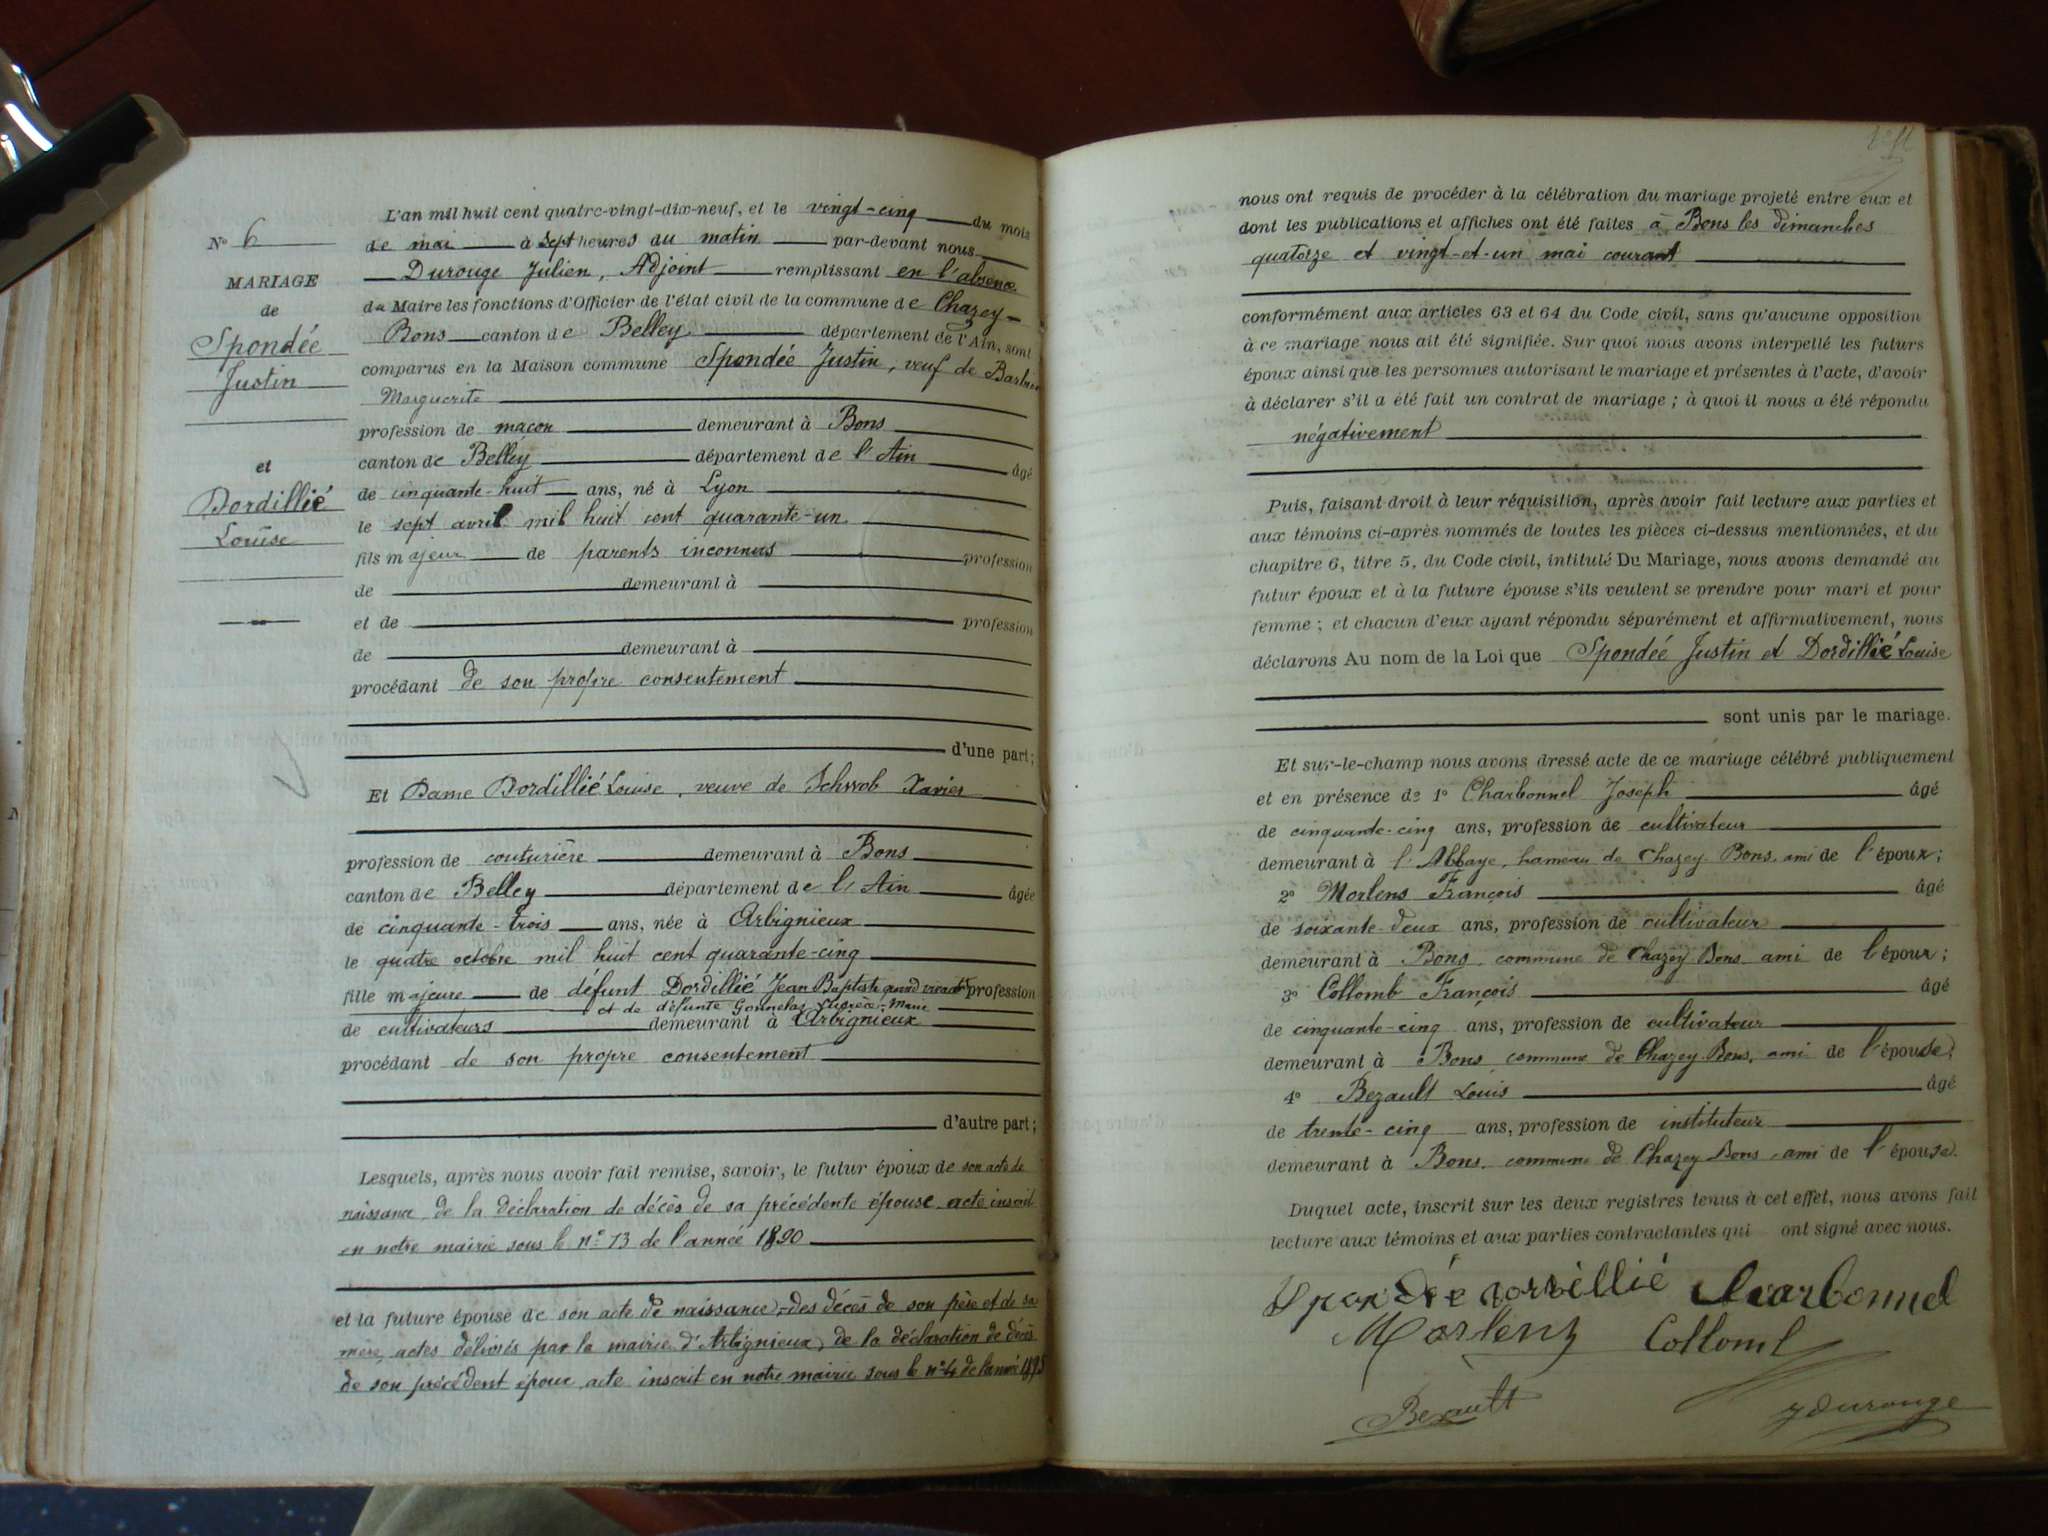 N° 6
MARIAGE
de
Spondée
Justin
et
Dordillié
Louise
L'an mil huit cent quatre-vingt-dix-neuf, et le vingt-cinq du mois
de mai à sept heures du matin par-devant nous
Durouge Julien, Adjoint remplissant en l'absence
du Maire les fonctions d'Officier de l'état civil de la commune de Chazey-
Bons canton de Belley département de l'Ain, sont
comparus en la Maison commune Spondée Justin, veuf de
Marguerite
profession de maçon demeurant à Bons
canton de Belley département de l'Ain âgé
de cinquante-huit ans, né à Lyon
le sept avril mil huit cent quarante-un
fils majeur de parents inconnus profession
de demeurant à
et de profession
de demeurant à
procédant de son propre consentement
d'une part;
Et Dame Dordillié Louise, veuve de Schwob Xavier
profession de couturière demeurant à Bons
canton de Belley département de l'Ain âgée
de cinquante-trois ans, née à Arbignieux
le quatre octobre mil huit cent quarante-cinq
fille majeure de défunt Dordillié Jean Baptiste quand vivait profession
et de défunte Marie
de cultivateurs demeurant à Arbignieux
procédant de son propre consentement
d'autre part;
Lesquels, après nous avoir fait remise, savoir, le futur époux de son acte de
naissance, de la déclaration de décès de sa précédente épouse, acte inscrit
en notre mairie sous le n° 13 de l'année 1890
et la future épouse de son acte de naissance, des décès de son père et de sa
mère, actes délivrés par la mairie d'Arbignieux, de la déclaration de décès
de son précédent époux, acte inscrit en notre mairie sous le n° 4 de l'année
nous ont requis de procéder à la célébration du mariage projeté entre eux et
dont les publications et affiches ont été faites à Bons les dimanches
quatorze et vingt-et-un mai courant
conformément aux articles 63 et 64 du Code civil, sans qu'aucune opposition
à ce mariage nous ait été signifiée. Sur quoi nous avons interpellé les futurs
époux ainsi que les personnes autorisant le mariage et présentes à l'acte, d'avoir
à déclarer s'il a été fait un contrat de mariage; à quoi il nous a été répondu
négativement
Puis, faisant droit à leur réquisition, après avoir fait lecture aux parties et
aux témoins ci-après nommés de toutes les pièces ci-dessus mentionnées, et du
chapitre 6, titre 5, du Code civil, intitulé Du Mariage, nous avons demandé au
futur époux et à la future épouse s'ils veulent se prendre pour mari et pour
femme; et chacun d'eux ayant répondu séparément et affirmativement, nous
déclarons Au nom de la Loi que Spondée Justin et Dordillié Louise
sont unis par le mariage.
Et sur-le-champ nous avons dressé acte de ce mariage célébré publiquement
et en présence de 1° Charbonnel Joseph âgé
de cinquante-cinq ans, profession de cultivateur
demeurant à l'Abbaye, hameau de Chazey-Bons, ami de l'époux;
2° Morlens François âgé
de soixante-deux ans, profession de cultivateur
demeurant à Bons, commune de Chazey Bons ami de l'époux;
3° Collomb François âgé
de cinquante-cinq ans, profession de cultivateur
demeurant à Bons, commune de Chazey Bons, ami de l'épouse;
4° Bezault Louis âgé
de trente-cinq ans, profession de instituteur
demeurant à Bons, commune de Chazey Bons, ami de l'épouse.
Duquel acte, inscrit sur les deux registres tenus à cet effet, nous avons fait
lecture aux témoins et aux parties contractantes qui ont signé avec nous.
Spondée dordillié Charbonnel
Morlens Collomb
Bezault J Durouge